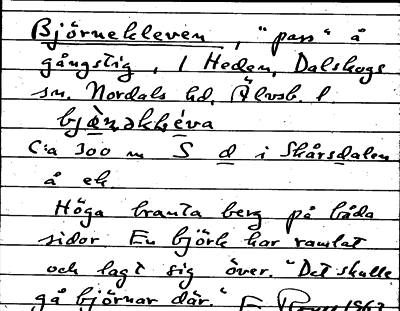 Björnekleven, "pass" å
gångstig, 1 Heden, Dalskogs
sn. Nordals hd, Älvsb. l.
bjö̀ṇəkhléva
C:a 300 m S d i Skårsdalen
å ek.
Höga branta berg på båda
sidor. En björk har ramlat
och lagt sig över. "Det skulle
gå björnar där."